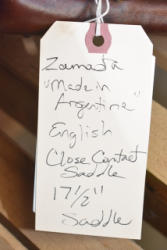 Zamasta
"Made in
Argentina"
English
Close Contact
Saddle
17 1/2"
Saddle